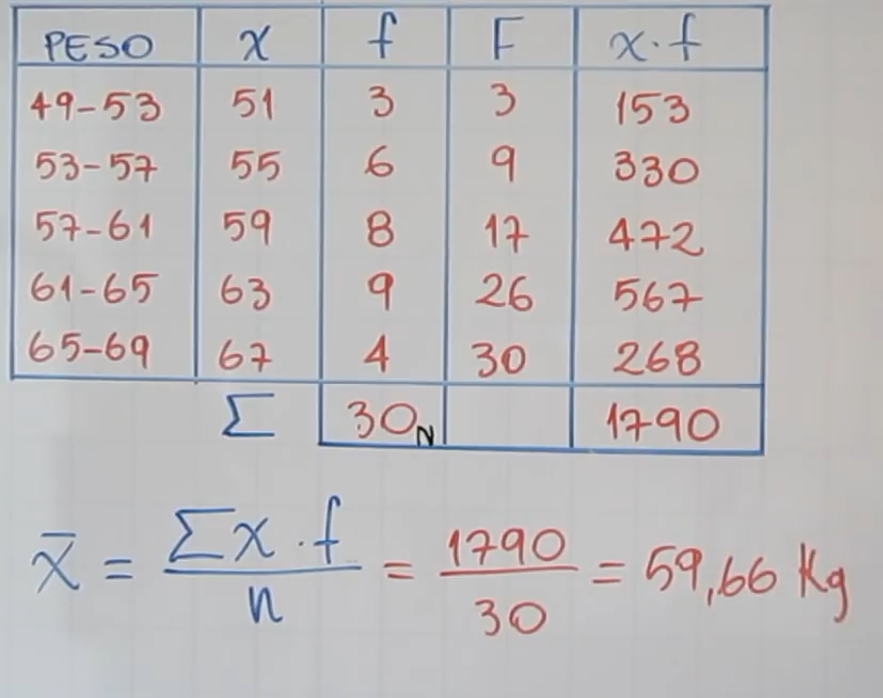 PESO x f F x·f
49-53 51 3 3 153
53-57 55 6 9 330
57-61 59 8 17 472
61-65 63 9 26 567
65-69 67 4 30 268
Σ 30 N 1790
x̄ = Σx·f / n = 1790 / 30 = 59,66 Kg